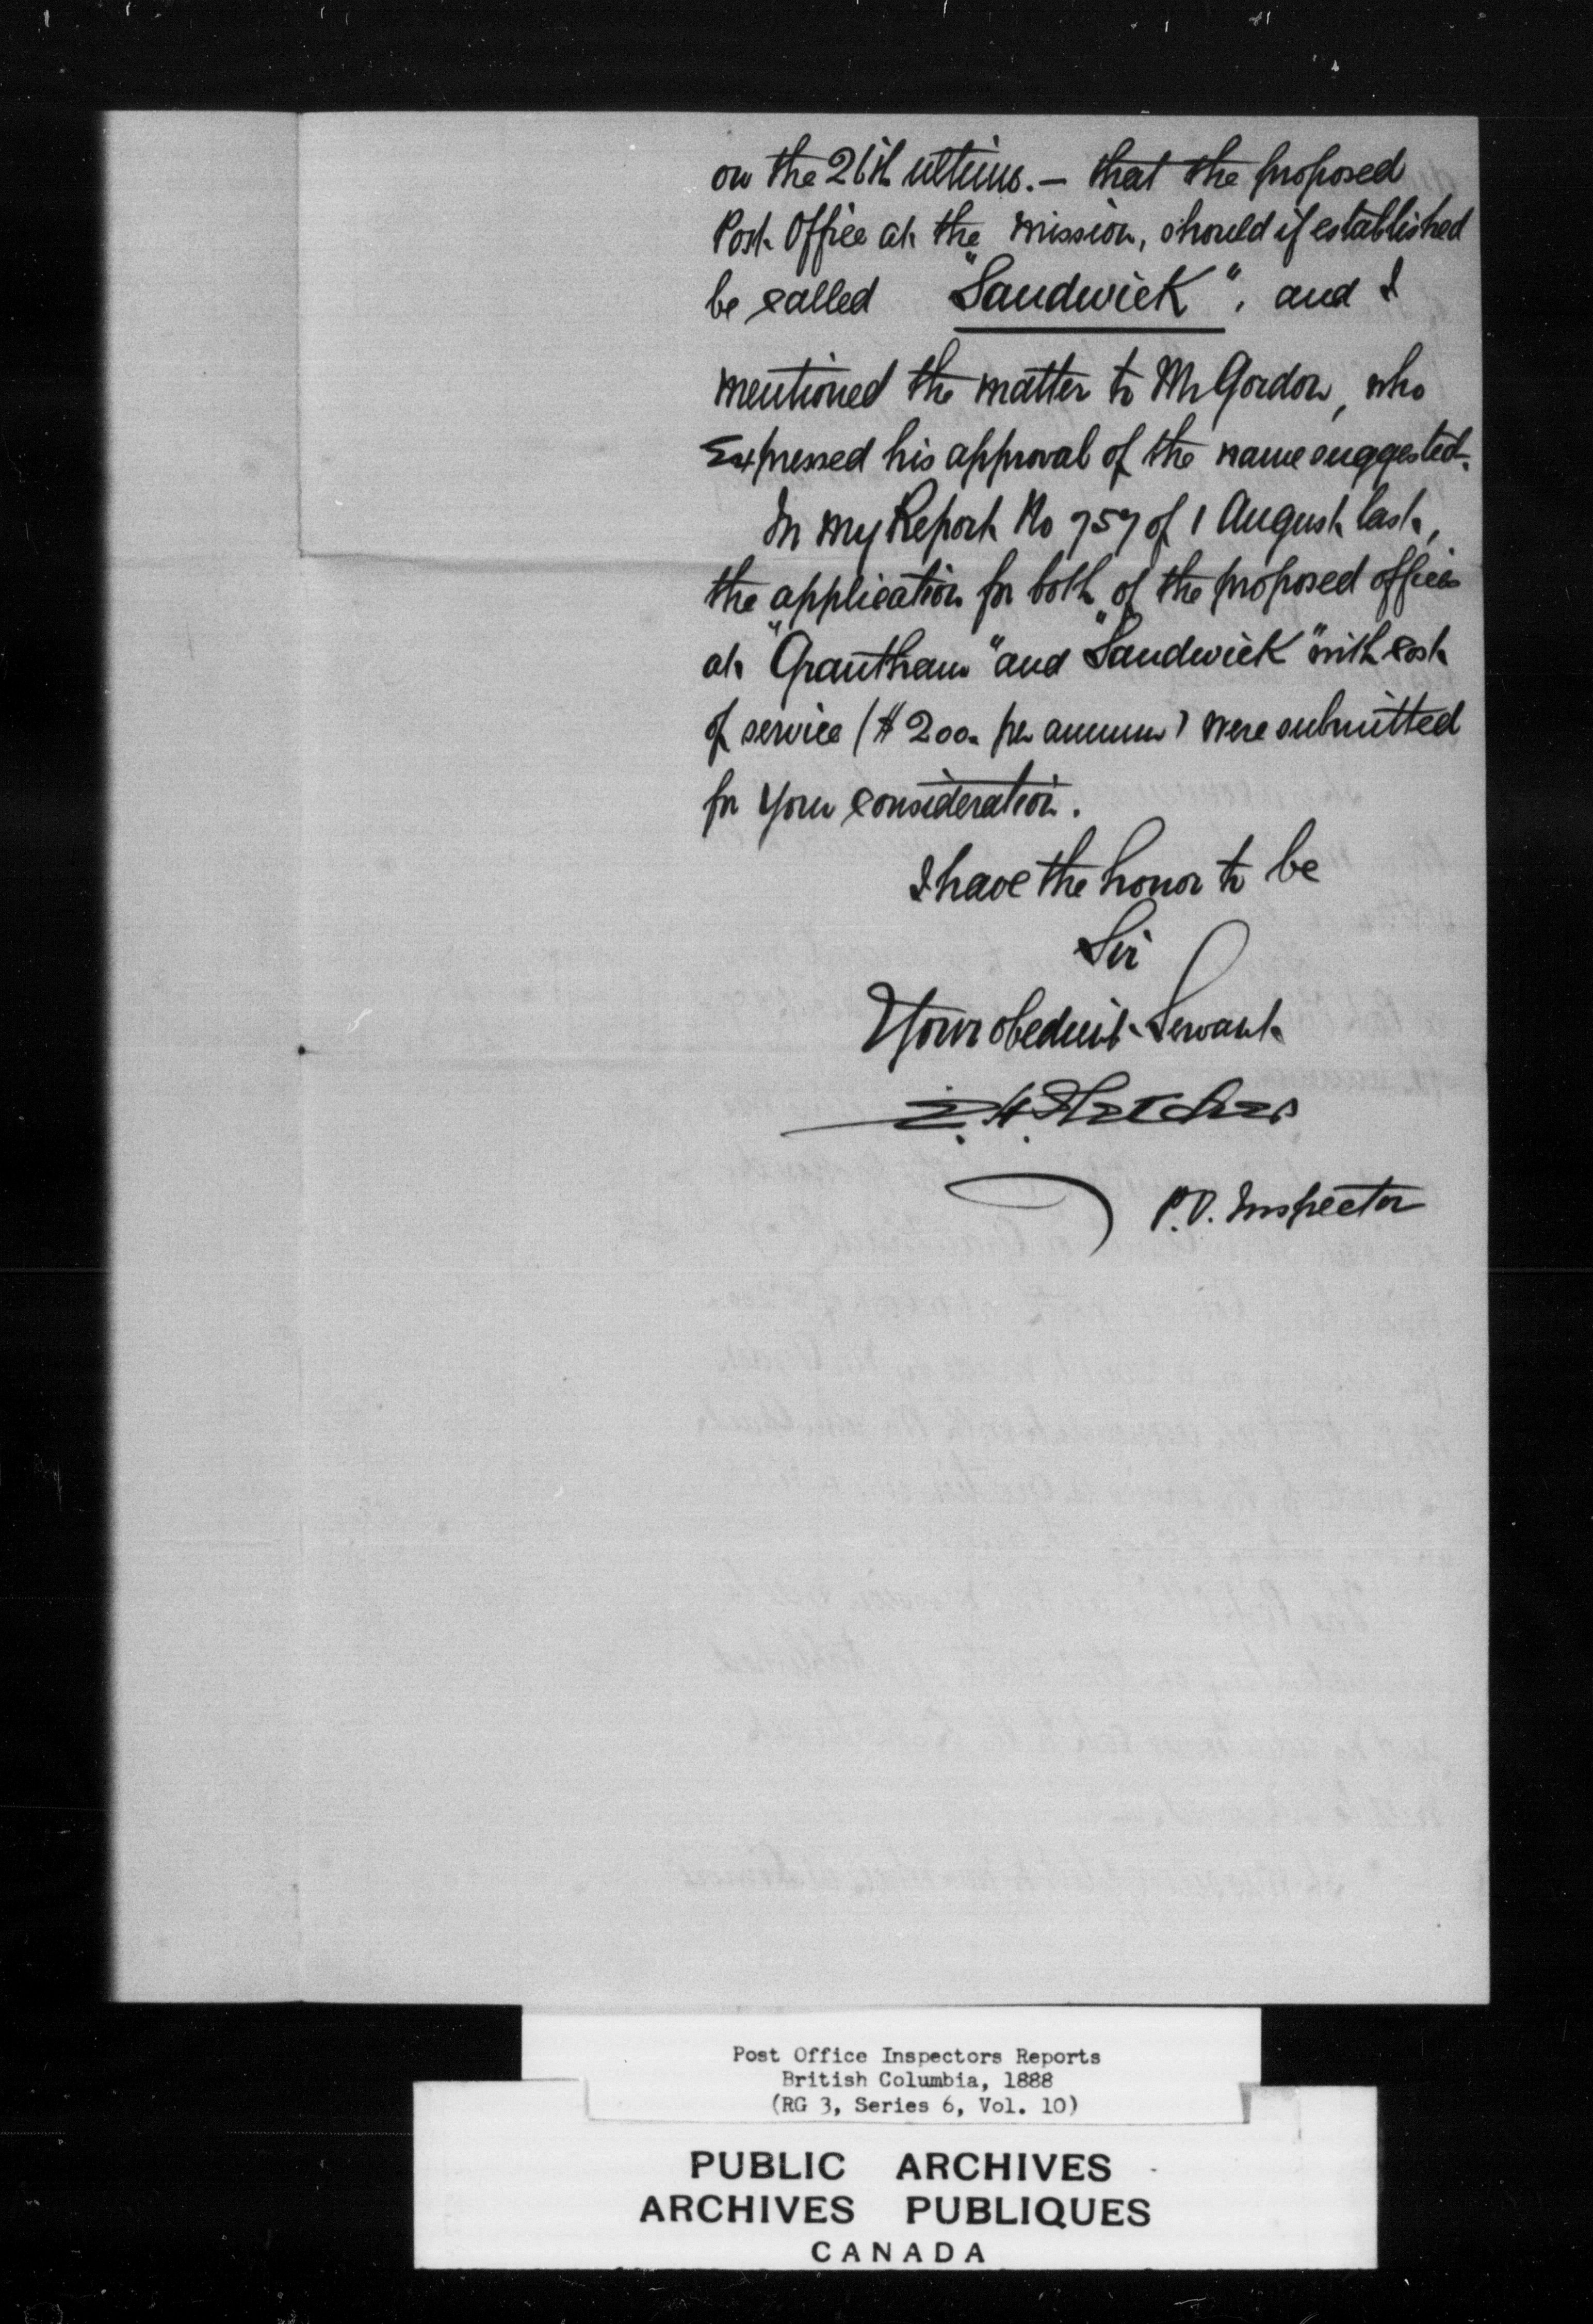 on the 26th ultimo. — that the proposed
Post Office at the Mission, should if established
be called "Sandwick", and I
mentioned the matter to Mr Gordon, who
Expressed his approval of the name suggested.
In my Report No 757 of 1 August last,
the application for both of the proposed offices
at "Grantham" and "Sandwick" with cost
of service ($200. per annum) were submitted
for your consideration.
I have the honor to be
Sir
Your obedient Servant
E. H. Fletcher
P.O. Inspector
Post Office Inspectors Reports
British Columbia, 1888
(RG 3, Series 6, Vol. 10)
PUBLIC ARCHIVES
ARCHIVES PUBLIQUES
CANADA